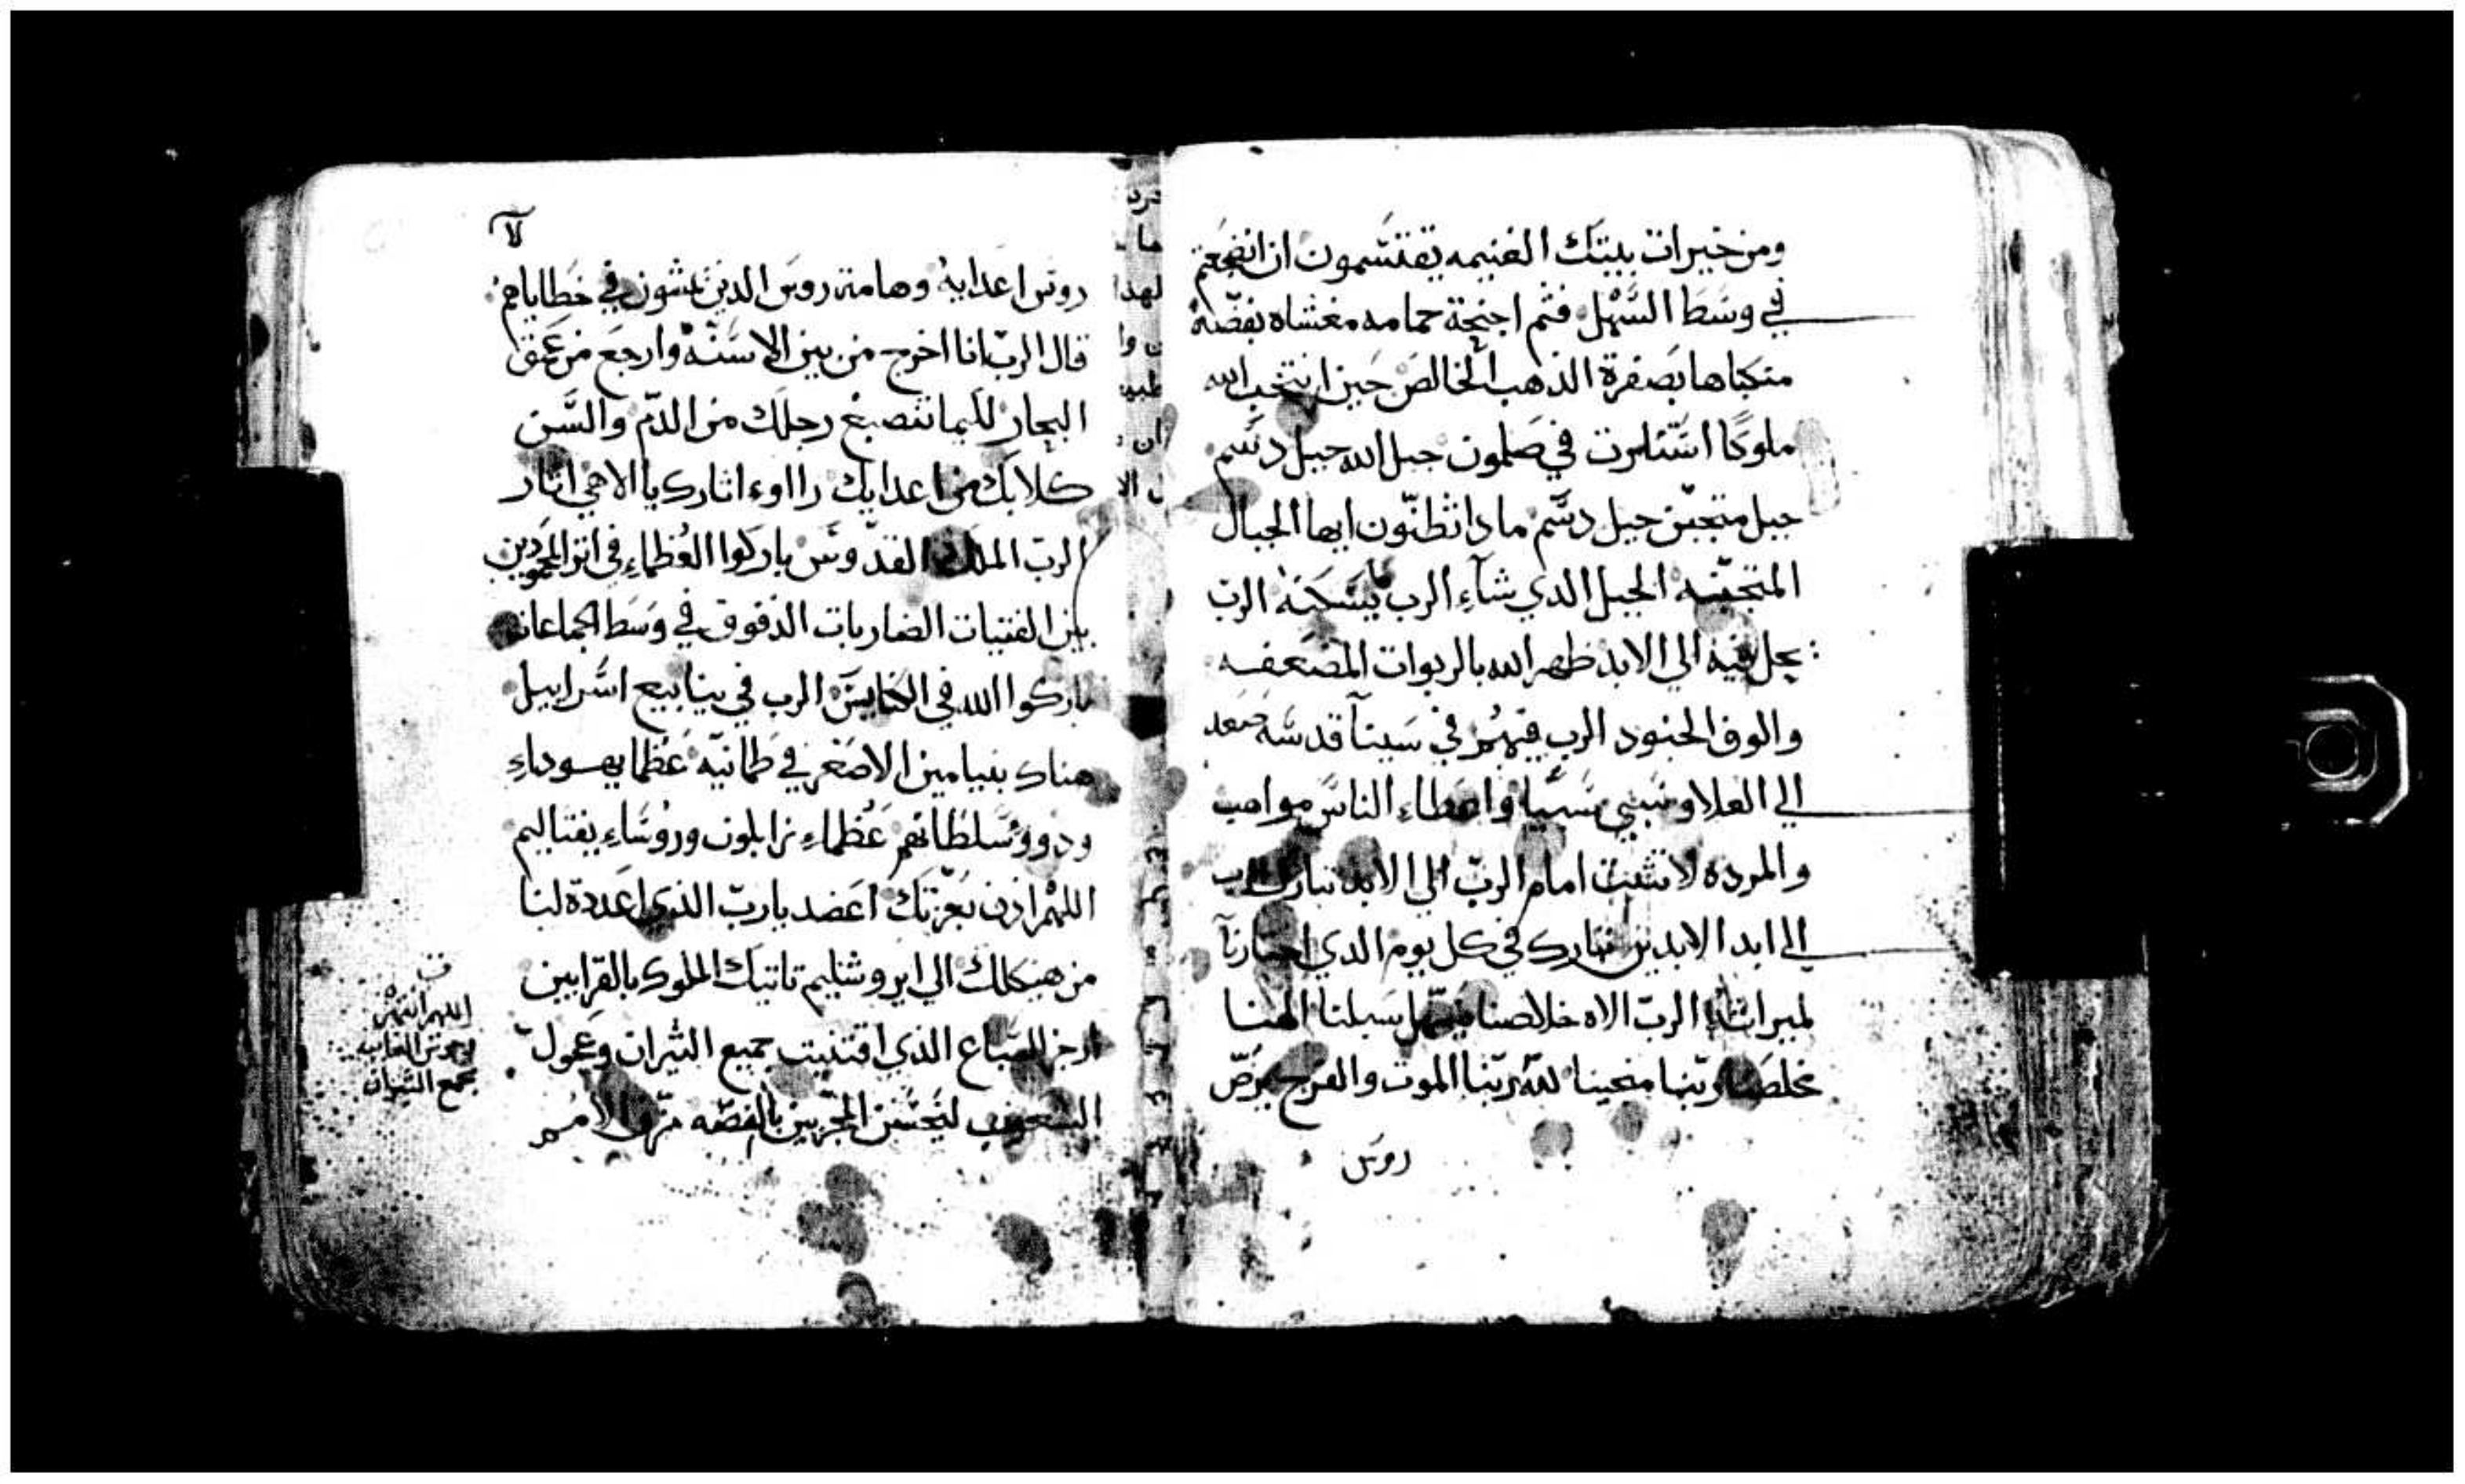 ومن خيرات بيتك الغنيمه يقتسمون ان انضجعتم
في وسط السهل فثم اجنحة حمامه مغشاه بفضة
متكباها بصفرة الذهب الخالص حين انتخب الله
ملوكا استنارت في صلمون جبل الله جبل دسم
جبل متجبن جبل دسم ماذا تظنون ايها الجبال
المتجبنه الجبل الذي شاء الرب يسكنه الرب
يحل فيه الي الابد ظهر الله بالربوات المضعفه
والوف الجنود الرب فيهم في سينا قدسه صعد
الي العلا وسبي سبيا واعطاء الناس مواهب
والمرده لا تثبت امام الرب الي الابد تبارك الرب
الي ابد الابدين تبارك في كل يوم الذي اختارنا
لميراثه الرب الاه خلاصنا يسهل سبلنا الهنا
مخلصنا ربنا منجينا لله ربنا الموت والفرج يرض
روس
لا
روس اعدايه وهامة روس الذين يمشون في خطاياهم
قال الرب انا اخرج من بين الاسنه وارجع من عمق
البحار لكيما تنصبغ رجلك من الدم والسن
كلابك من اعدايك راوء اثارك يا الاهي اثار
الرب الملك القدوس باركوا العظماء في اثر المجودين
بين الفتيات الضاربات الدفوف في وسط الجماعات
باركوا الله في الكنايس الرب في ينابيع اسرابيل
هناك بنيامين الاصغر في طمانيه عظما يهوداء
وذوو سلطانهم عظماء زابلون وروساء يفتاليم
اللهم اذن بعزتك اعضد يارب الذي اعددة لنا
من هيكلك الي ايروشليم تاتيك الملوك بالقرابين
ازجر السباع الذي اقتنيت جميع الثيران وعجول
الشعوب ليحتسن المجربين بالفضه مزق الامم
اللهم انتهر
وحوش الغاب
مجمع الثيران